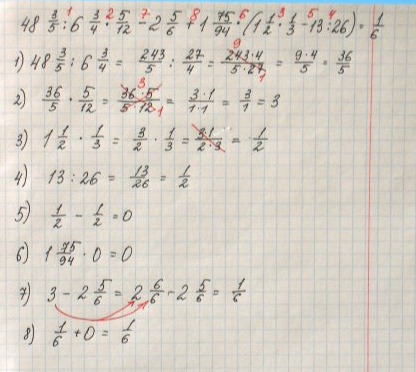 48 3/5 : 6 3/4 · 5/12 - 2 5/6 + 1 75/94 · (1 1/2 · 1/3 - 13 : 26) = 1/6
1) 48 3/5 : 6 3/4 = 243/5 : 27/4 = 243·4/5·27 = 9·4/5 = 36/5
2) 36/5 · 5/12 = 36·5/5·12 = 3·1/1·1 = 3/1 = 3
3) 1 1/2 · 1/3 = 3/2 · 1/3 = 3·1/2·3 = 1/2
4) 13 : 26 = 13/26 = 1/2
5) 1/2 - 1/2 = 0
6) 1 75/94 · 0 = 0
7) 3 - 2 5/6 = 2 6/6 - 2 5/6 = 1/6
8) 1/6 + 0 = 1/6